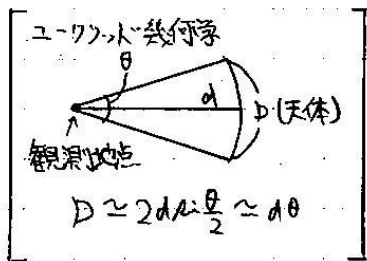 ユークリッド幾何学
θ
d
D(天体)
観測地点
D ≃ 2d sin θ/2 ≃ dθ